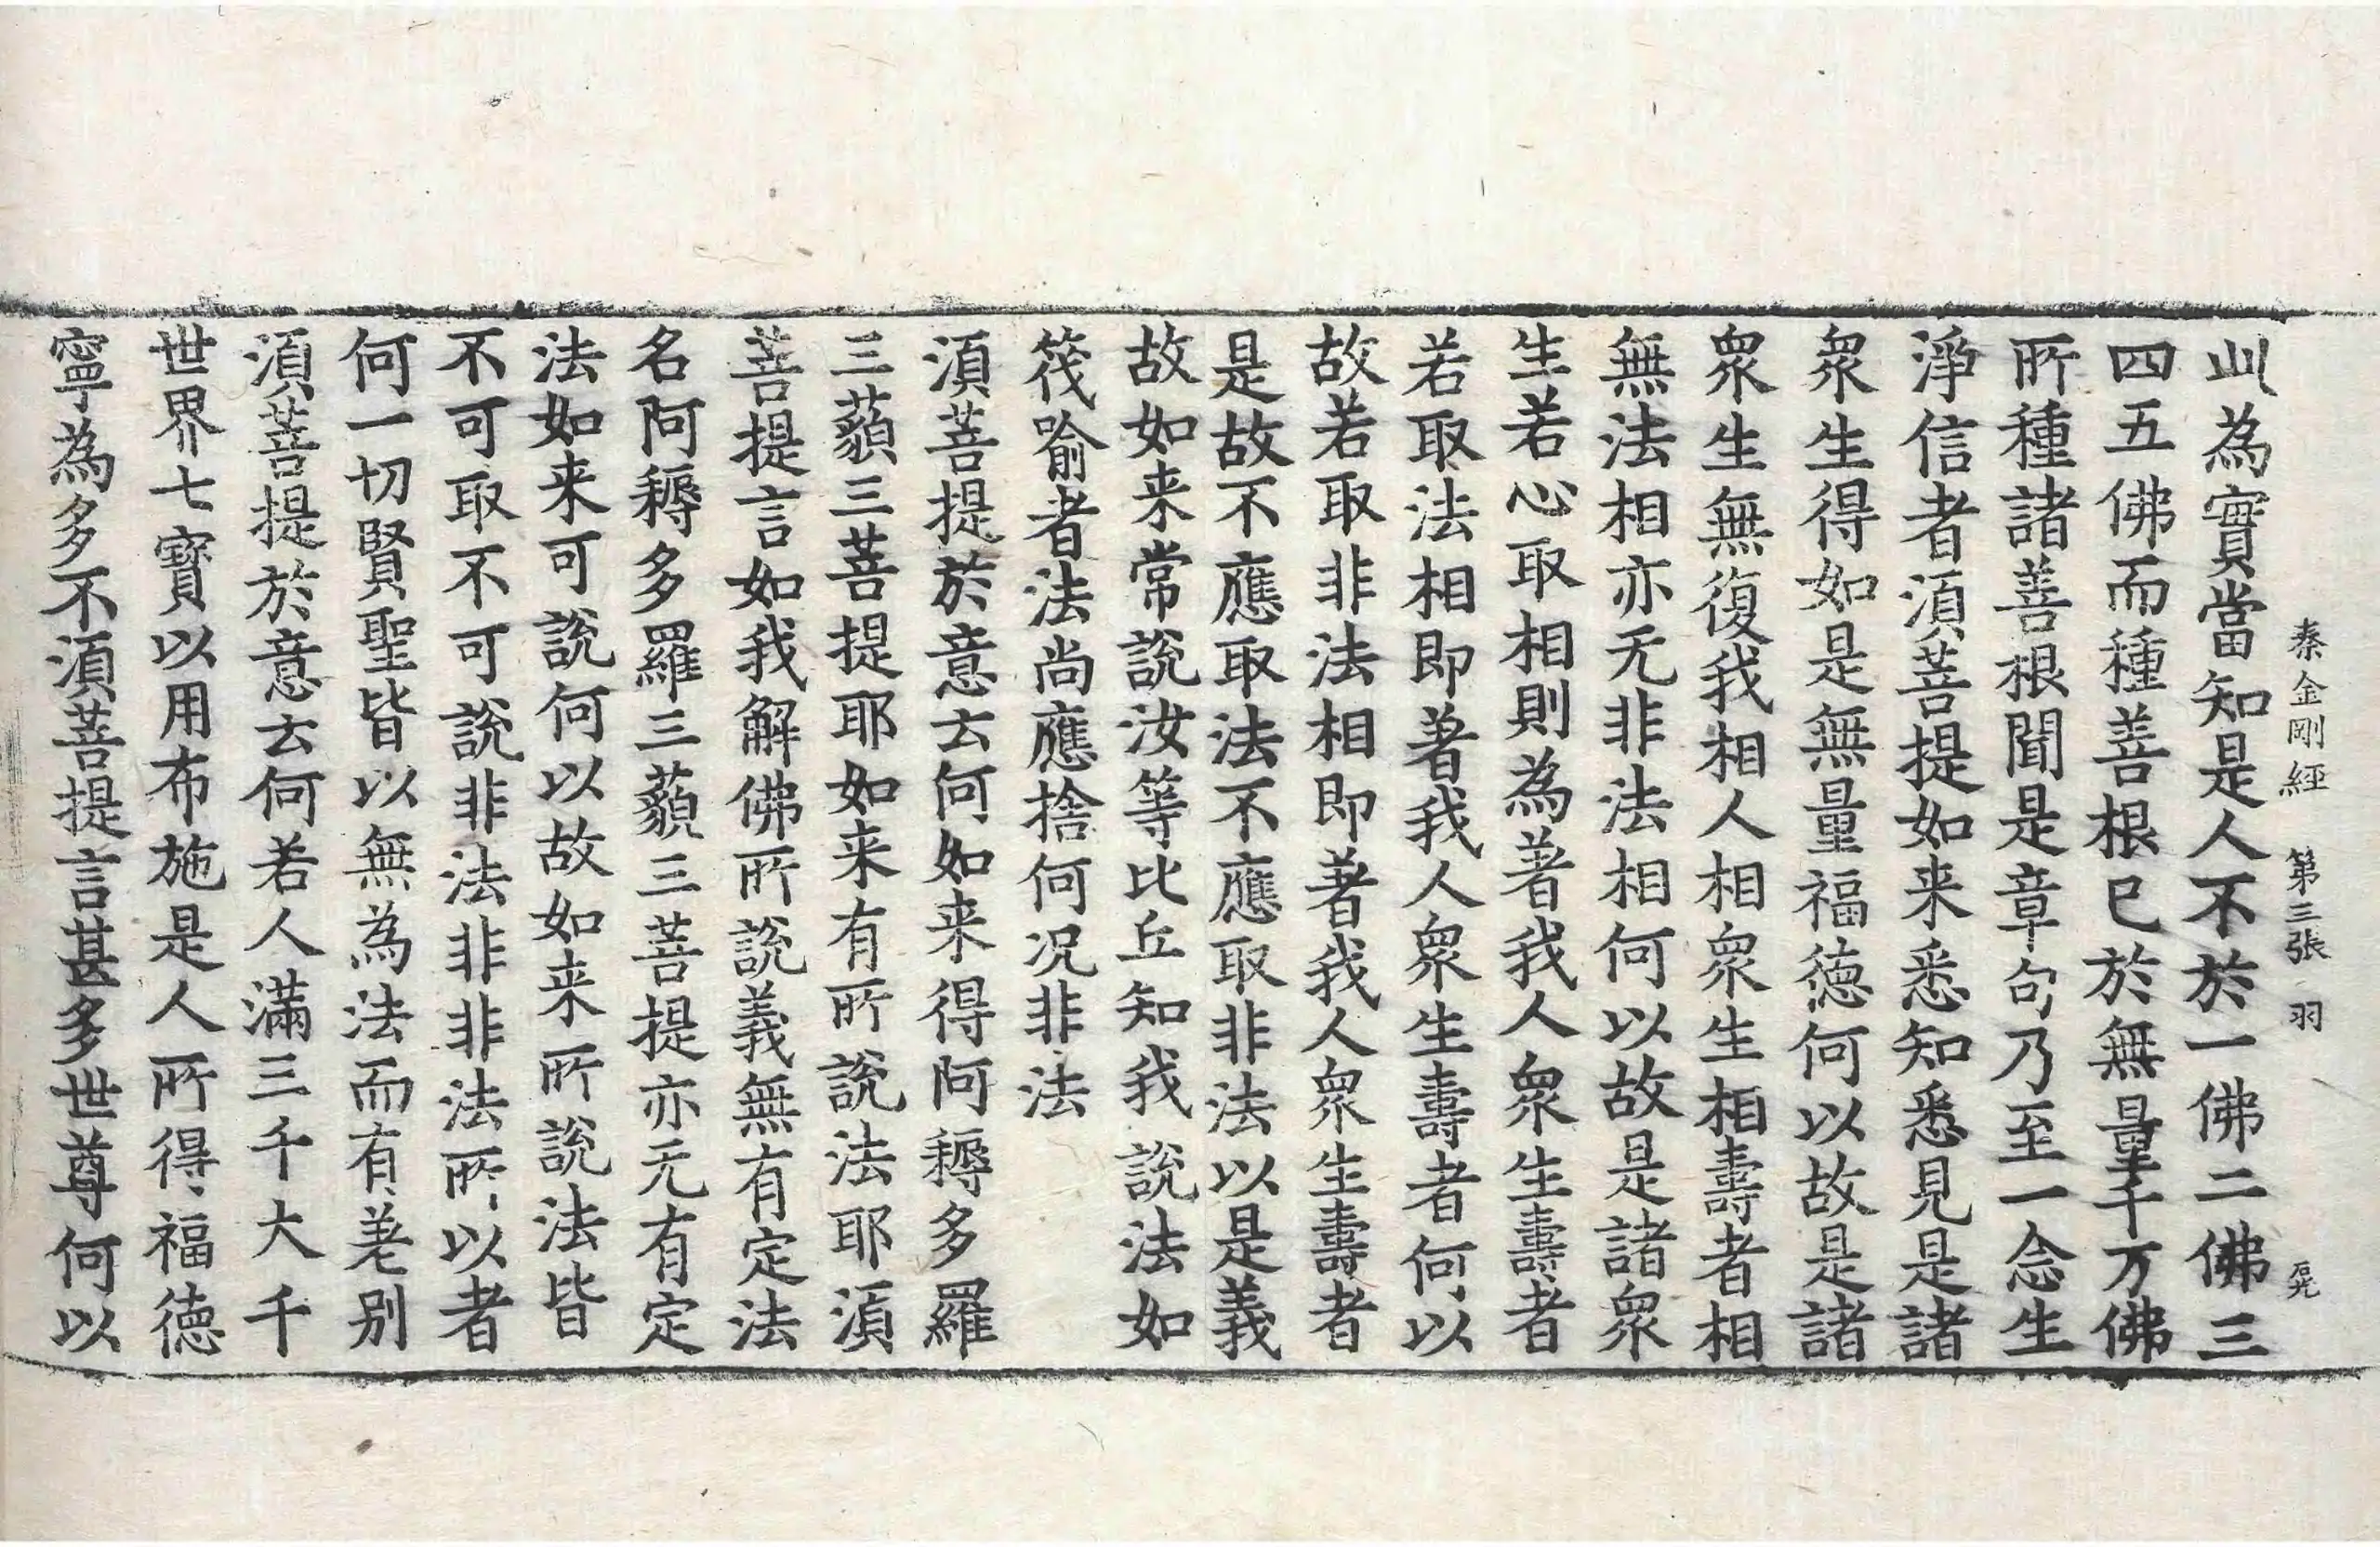 秦金剛經 第三張 羽
此為實當知是人不於一佛二佛三
四五佛而種善根已於無量千万佛
所種諸善根聞是章句乃至一念生
淨信者湏菩提如来悉知悉見是諸
衆生得如是無量福德何以故是諸
衆生無復我相人相衆生相壽者相
無法相亦无非法相何以故是諸衆
生若心取相則為著我人衆生壽者
若取法相即著我人衆生壽者何以
故若取非法相即著我人衆生壽者
是故不應取法不應取非法以是義
故如来常說汝等比丘知我說法如
筏喻者法尚應捨何况非法
湏菩提於意云何如来得阿耨多羅
三藐三菩提耶如来有所說法耶湏
菩提言如我解佛所說義無有定法
名阿耨多羅三藐三菩提亦无有定
法如来可說何以故如来所說法皆
不可取不可說非法非非法所以者
何一切賢聖皆以無為法而有差别
湏菩提於意云何若人滿三千大千
世界七寶以用布施是人所得福德
寧為多不湏菩提言甚多世尊何以